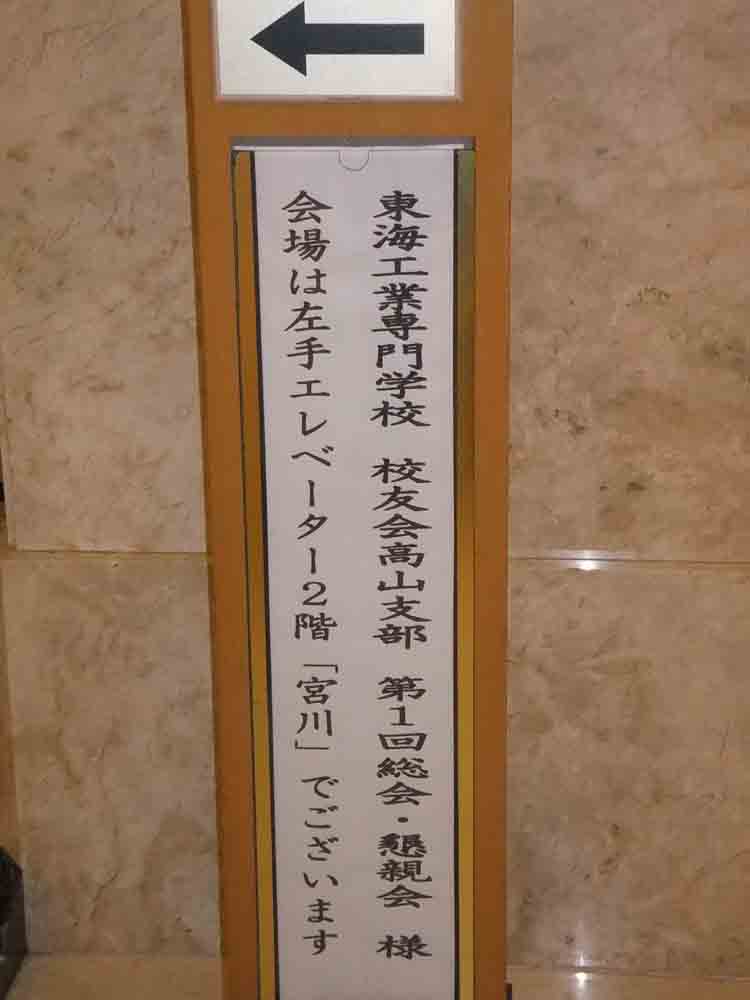 東海工業専門学校　校友会高山支部　第１回総会・懇親会　様
会場は左手エレベーター２階「宮川」でございます